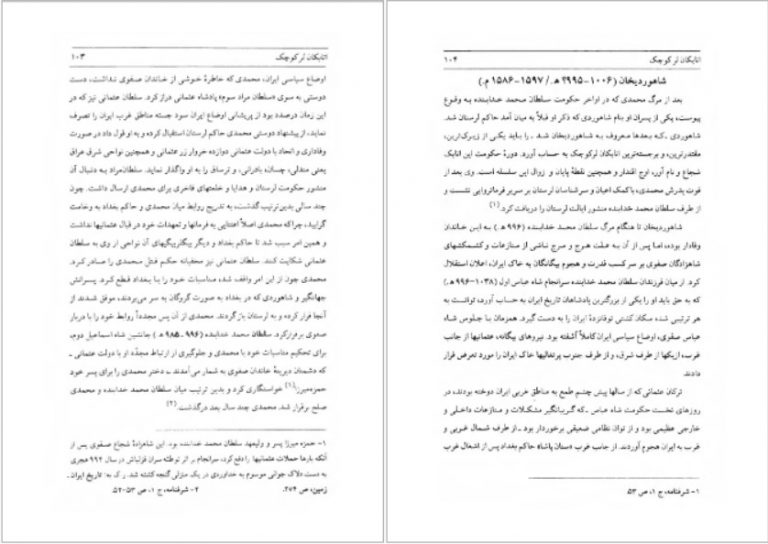 اتابکان لر کوچک ۱۰۳
اوضاع سیاسی ایران، محمدی که خاطرهٔ خوشی از خاندان صفوی نداشت، دست
دوستی به سوی «سلطان مراد سوم» پادشاه عثمانی دراز کرد. سلطان عثمانی نیز که در
این زمان درصدد بود از پریشانی اوضاع ایران سود جسته مناطق غرب ایران را تصرف
نماید، از پیشنهاد دوستی محمدی حاکم لرستان استقبال کرده و به او قول داد در صورت
وفاداری و اتحاد با دولت عثمانی دوازده خروار زر عثمانی و همچنین نواحی شرق عراق
یعنی مندلی، جسان، بادرائی، و ترساق را به او واگذار نماید. سلطان مراد به دنبال آن
منشور حکومت لرستان و هدایا و خلعتهای فاخری برای محمدی ارسال داشت. چون
چند سالی بدین ترتیب گذشت، به تدریج روابط میان محمدی و حاکم بغداد به وخامت
گرایید، چراکه محمدی اصلاً اعتنایی به فرمانها و تعهدات خود در قبال عثمانیها نداشت
و همین امر سبب شد تا حاکم بغداد و دیگر بیگلربیگیهای آن نواحی از وی به سلطان
عثمانی شکایت کنند. سلطان عثمانی نیز مخفیانه حکم قتل محمدی را صادر کرد.
محمدی چون از این امر واقف شد، مناسبات خود را با بغداد قطع کرد. پسرانش
جهانگیر و شاهوردی که در بغداد به صورت گروگان به سر می‌بردند، موفق شدند از
آنجا فرار کرده و به لرستان بازگردند. محمدی از آن پس مجدداً روابط خود را با دربار
صفوی برقرار کرد. سلطان محمد خدابنده (۹۹۶ـ۹۸۵ هـ) جانشین شاه اسماعیل دوم،
برای تحکیم مناسبات خود با محمدی و جلوگیری از ارتباط مجدّد او با دولت عثمانی ـ
که دشمنان دیرینهٔ خاندان صفوی به شمار می‌آمدند ـ دختر محمدی را برای پسر خود
حمزه‌میرزا(۱) خواستگاری کرد و بدین ترتیب میان سلطان محمد خدابنده و محمدی
صلح برقرار شد. محمدی چند سال بعد درگذشت.(۲)
۱- حمزه میرزا پسر و ولیعهد سلطان محمد خدابنده بود. این شاهزادهٔ شجاع صفوی پس از
آنکه بارها حملات عثمانیها را دفع کرد، سرانجام بر اثر توطئه سران قزلباش در سال ۹۹۴ هجری
به دست دلاک جوانی موسوم به خداوردی در یک منزلی گنجه کشته شد. ر ک به: تاریخ ایران ـ
زمین، ص ۲۷۴. ۲- شرفنامه، ج ۱، ص ۵۳-۵۲.
اتابکان لر کوچک ۱۰۴
شاهوردیخان (۱۰۰۶-؟۹۹۵ هـ./ ۱۵۹۷-۱۵۸۶ م.)
بعد از مرگ محمدی که در اواخر حکومت سلطان محمد خدابنده به وقوع
پیوست، یکی از پسران او بنام شاهوردی که ذکر او قبلاً به میان آمد حاکم لرستان شد.
شاهوردی ـ که بعدها معروف به شاهوردیخان شد ـ را باید یکی از زیرک‌ترین،
مقتدرترین، و برجسته‌ترین اتابکان لرکوچک به حساب آورد. دورهٔ حکومت این اتابک
شجاع و نام آور، اوج اقتدار و همچنین نقطهٔ پایان و زوال این سلسله است. وی بعد از
فوت پدرش محمدی، با کمک اعیان و سرشناسان لرستان بر سریر فرمانروایی نشست و
از طرف سلطان محمد خدابنده منشور ایالت لرستان را دریافت کرد.(۱)
شاهوردیخان تا هنگام مرگ سلطان محمد خدابنده (۹۹۶ هـ) به این خاندان
وفادار بوده، اما پس از آن به علت هرج و مرج ناشی از منازعات و کشمکشهای
شاهزادگان صفوی بر سر کسب قدرت و هجوم بیگانگان به خاک ایران، اعلان استقلال
کرد. از میان فرزندان سلطان محمد خدابنده سرانجام شاه عباس اول (۱۰۳۸-۹۹۶ هـ)
که به حق باید او را یکی از بزرگترین پادشاهان تاریخ ایران به حساب آورد، توانست به
هر ترتیبی شده سکان کشتی توفانزدهٔ ایران را به دست گیرد. همزمان با جلوس شاه
عباس صفوی، اوضاع سیاسی ایران کاملاً آشفته بود. نیروهای بیگانه، عثمانیها از جانب
غرب، ازبکها از طرف شرق، و از طرف جنوب پرتغالیها خاک ایران را مورد تعرض قرار
دادند.
ترکان عثمانی که از سالها پیش چشم طمع به مناطق غربی ایران دوخته بودند، در
روزهای نخست حکومت شاه عباس ـ که گریبانگیر مشکلات و منازعات داخلی و
خارجی عظیمی بود و از توان نظامی ضعیفی برخوردار بود ـ از طرف شمال غربی و
غرب به ایران هجوم آوردند. از جانب غرب «سنان پاشا» حاکم بغداد پس از اشغال غرب
۱- شرفنامه، ج ۱، ص ۵۳.